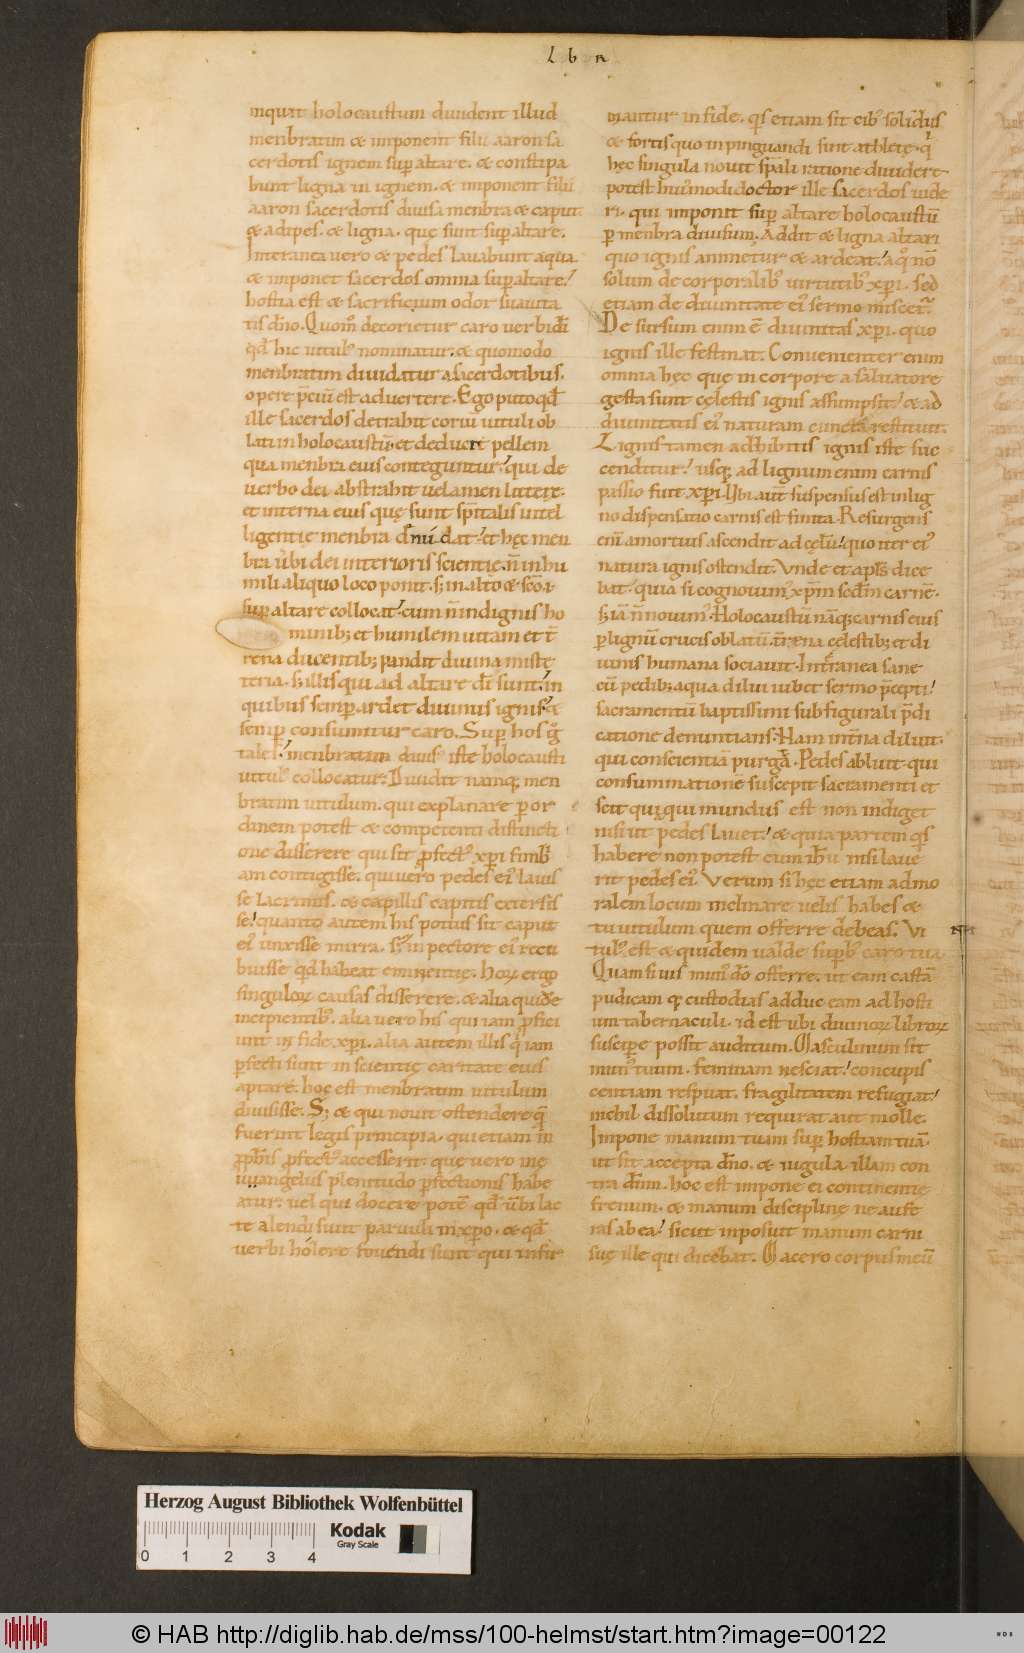 L b R
inquat holocaustum diuident illud
menbratim & imponent filii aaron sa
cerdotis ignem sup altare. & constipa
bunt ligna in ignem. & imponent filii
aaron sacerdotis diuisa menbra & caput.
& adipes. & ligna. quę sunt sup altare.
Interanea uero & pedes lauabunt aqua.
& imponet sacerdos omnia sup altare.
hostia est & sacrificium odor suauita
tis dño. Quom̊ decorietur caro uerbi dī
qd̄ hic uitul' nominatur. & quomodo
menbratim diuidatur a sacerdotibus.
opere p̄ciū est aduertere. Ego puto qd̄
ille sacerdos detrahit coriū uituli ob
lati in holocaustū. et deducit pellem
qua menbra eius conteguntur. qui de
uerbo dei abstrahit uelamen litterę.
et interna eius quę sunt sp̄italis intel
ligentię menbra dnúdat. et hęc men
bra uerbi dei interioris scientię. ñ in hu
mili aliquo loco ponit. s; in alto & sc̄o. i.
sup altare collocat. cum ñ indignis ho
minib; et humilem uitam et t̄
rena ducentib; pandit diuina mistę
teria. s; illis qui ad altare dī sunt. in
quibus semp ardet diuinus ignis. &
semp consumitur caro. Sup hos g°
tales menbratim diuis' iste holocausti
uitul' collocatur. Diuidit namq; men
bratim uitulum. qui explanare p or
dinem potest & competenti distincti
one disserere qui sit pfect' xpi fimb
am contigisse. qui uero pedes ei' lauis
se lacrimis. & capillis capitis extersis
se. quanto autem his potius sit caput
ei' unxisse mirra. s; in pectore ei' recu
buisse qd̄ habeat eminentię. Horꝝ ergo
singulorꝝ causas disserere. & alia quidē
incipientib'. alia uero his qui iam pfici
unt in fide xpi. alia autem illis q' iam
pfecti sunt in scientię caritate eius
aptare. hoc est menbratim uitulum
diuisisse. S; & qui nouit ostendere q̄
fuerint legis principia. qui etiam in
pphīs pfect' accesserit. quę uero in ę
uuangelus plenitudo pfectionis habe
atur. uel qui docere potē qd̄ uerbi lac
te alendi sunt paruuli in xpo. & qd̄
uerbi holere fouendi sunt qui infir
mantur in fide. q's etiam sit cib' solidus
& fortis quo inpinguandi sunt athletę. q'
hęc singula nouit sp̄ali ratione diuidere
potest hui'modi doctor ille sacerdos uide
ri. qui imponit sup altare holocaustū
p menbra diuisum. Addit & ligna altari
quo ignis animetur & ardeat. a q° nō
solum de corporalib' uirtutib' xpi. sed
etiam de diuinitate ei' sermo miscet'.
De sursum enim ē diuinitas xpi. quo
ignis ille festinat. Conuenienter enim
omnia hęc quę in corpore a saluatore
gesta sunt cęlestis ignis assumpsit. & ad
diuinitatis ei' naturam cuncta restituit.
Lignis tamen adhibitis ignis iste suc
cenditur. usq; ad lignum enim carnis
passio fuit xpi. Ubi aut̄ suspensus est in lig
no dispensatio carnis est finita. Resurgens
enī a mortuis ascendit ad cęlū. quo iter ei'
natura ignis ostendit. Vnde et apl's dice
bat. quia si cognouim' xpm scdm carnē.
s; iā ñ nouim'. Holocaustū nāq; carnis eius
p lignū crucis oblatū. t̄rena cęlestib; et di
uinis humana sociauit. Interanea sane
cū pedib; aqua dilui iubet sermo p̄cepti.
sacramentū baptissimi sub figurali p̄di
catione denuntians. Nam int̄na diluit.
qui conscientiā purgat. Pedes abluit. qui
consummationē suscepit sacramenti et
scit quę qui mundus est non indiget
nisi ut pedes lauet. & quia partem q's
habere non potest cum ihu nisi laue
rit pedes ei'. Verum si hęc etiam ad mo
ralem locum inclinare uelis habes &
tu uitulum quem offerre debeas. Vi
tul' est & quidem ualde supb' caro tua.
Quam si uis mun' dō offerre. ut eam castā
pudicam q; custodias adduc eam ad hosti
um tabernaculi. id est ubi diuinorꝝ librorꝝ
suscipe possit auditum. Masculinum sit
mun' tuum. feminam nesciat. concupis
centiam respuat. fragilitatem refugiat.
nichil dissolutum requirat aut molle.
Impone manum tuam sup hostiam tuā.
ut sit accepta dño. & iugula illam con
tra dñm. hoc est impone ei continentię
frenum. & manum disciplinę ne aufe
ras ab ea. sicut inposuit manum carni
suę ille qui dicebat. Macero corpus meū
Herzog August Bibliothek Wolfenbüttel
0 1 2 3 4
Kodak
Gray Scale
© HAB http://diglib.hab.de/mss/100-helmst/start.htm?image=00122